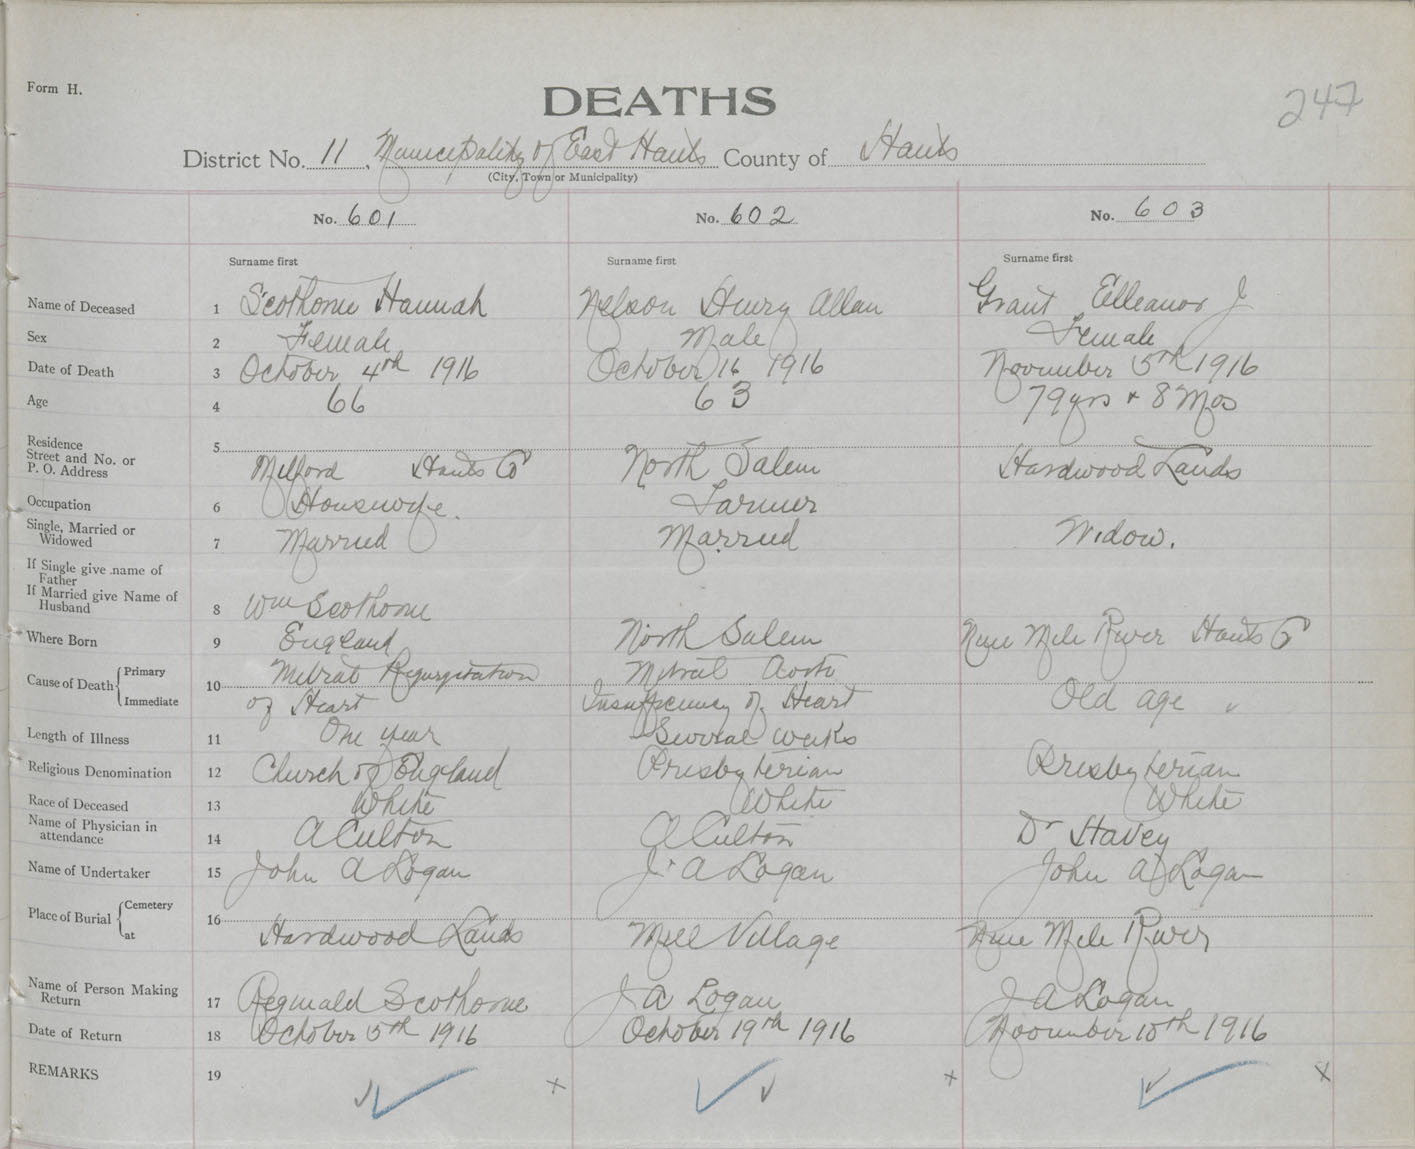 Form H.
247
DEATHS
District No. 11, Municipality of East Hants County of Hants
(City, Town or Municipality)
No. 601 No. 602 No. 603
Surname first Surname first Surname first
Name of Deceased 1 Scothorne Hannah Nelson Henry Allan Grant Elleanor J
Sex 2 Female Male Female
Date of Death 3 October 4th 1916 October 16 1916 November 5th 1916
Age 4 66 63 79 yrs + 8 Mos
Residence 5
Street and No. or
P. O. Address Milford Hants Co North Salem Hardwood Lands
Occupation 6 Housewife. Farmer
Single, Married or
Widowed 7 Married Married Widow.
If Single give name of
Father
If Married give Name of
Husband 8 Wm Scothorne
Where Born 9 England North Salem Nine Mile River Hants Co
Cause of Death Primary 10 Mitral Regurgitation Mitral
Immediate of Heart Insufficiency of Heart Old age
Length of Illness 11 One year Several weeks
Religious Denomination 12 Church of England Presbyterian Presbyterian
Race of Deceased 13 White White White
Name of Physician in
attendance 14 A Culton A Culton Dr Stavey
Name of Undertaker 15 John A Logan J. A Logan John A Logan
Place of Burial Cemetery 16
at Hardwood Lands Mill Village Nine Mile River
Name of Person Making
Return 17 Reginald Scothorne J A Logan J A Logan
Date of Return 18 October 5th 1916 October 19th 1916 November 10th 1916
REMARKS 19